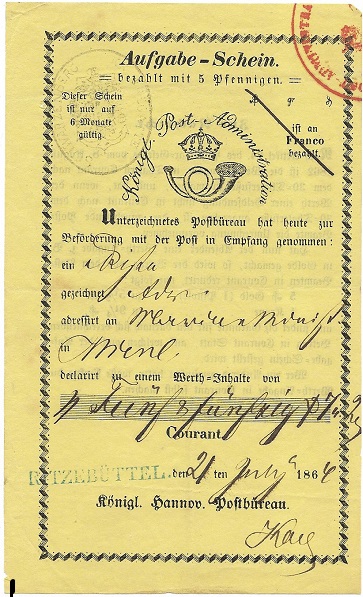 Aufgabe-Schein.
bezahlt mit 5 Pfennigen.
Dieser Schein
ist nur auf
6 Monate
gültig.
ist an
Franco
bezahlt.
Königl. Post-Administration
Unterzeichnetes Postbüreau hat heute zur
Beförderung mit der Post in Empfang genommen:
ein Kiste
gezeichnet Adr.
adressirt an Marine Minist.
in Wien
declarirt zu einem Werth-Inhalte von
Fünf & fünfzig
Courant.
RITZEBÜTTEL. den 21 ten July 1864
Königl. Hannov. Postbüreau.